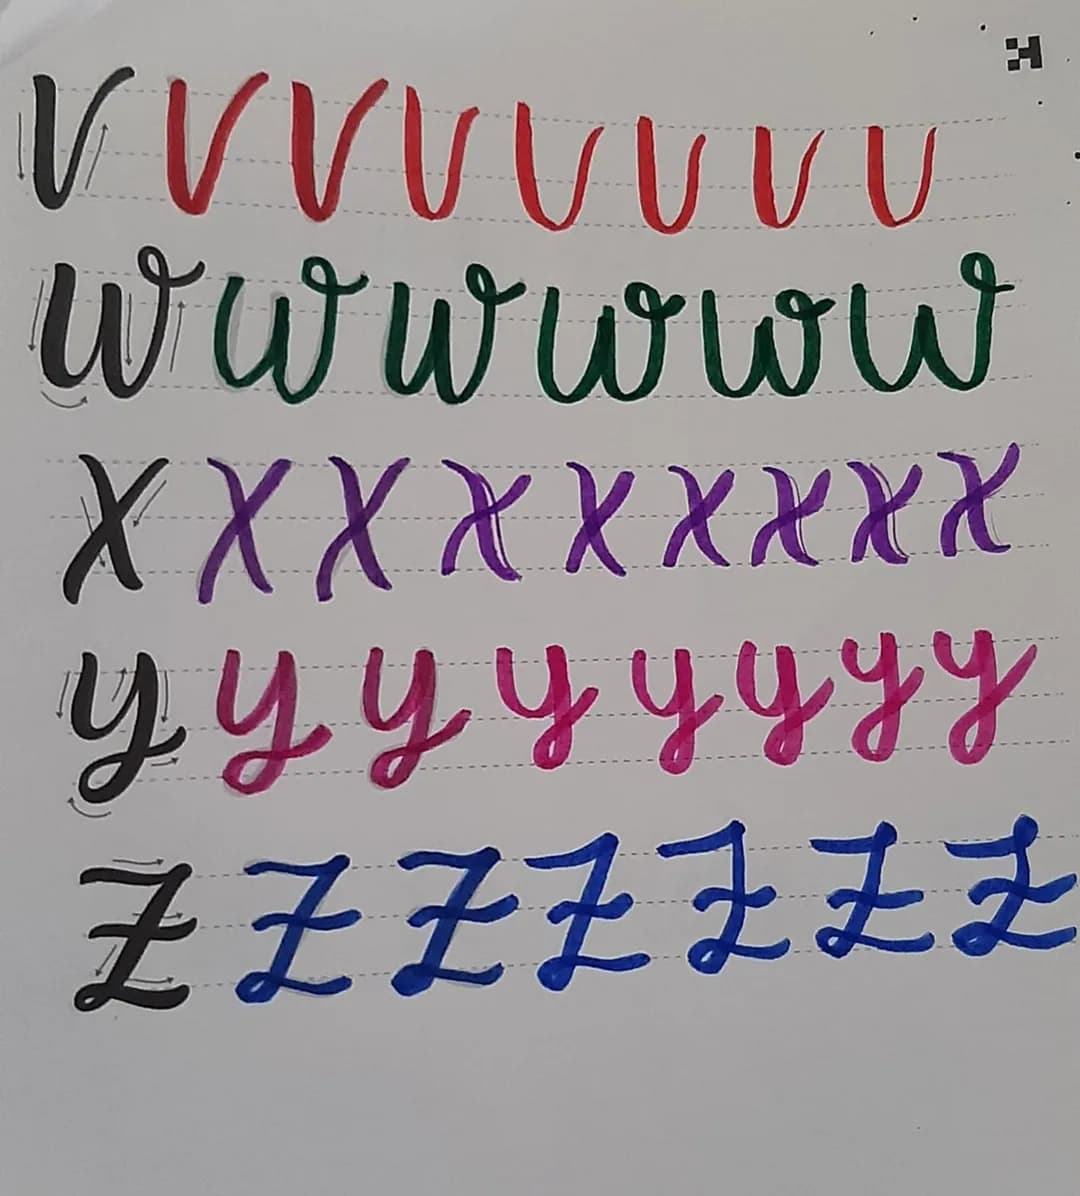 v v v v v v v v
w w w w w w
x x x x x x x x x
y y y y y y y y
z z z z z z z